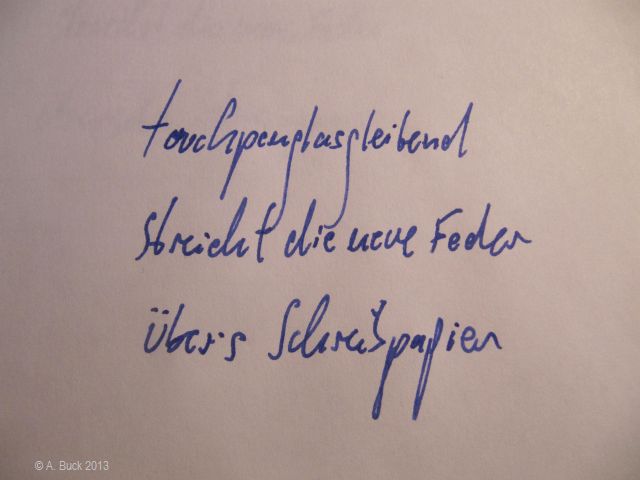 touchpenglasgleitend
streicht die neue Feder
über's Schreibpapier
© A. Buck 2013